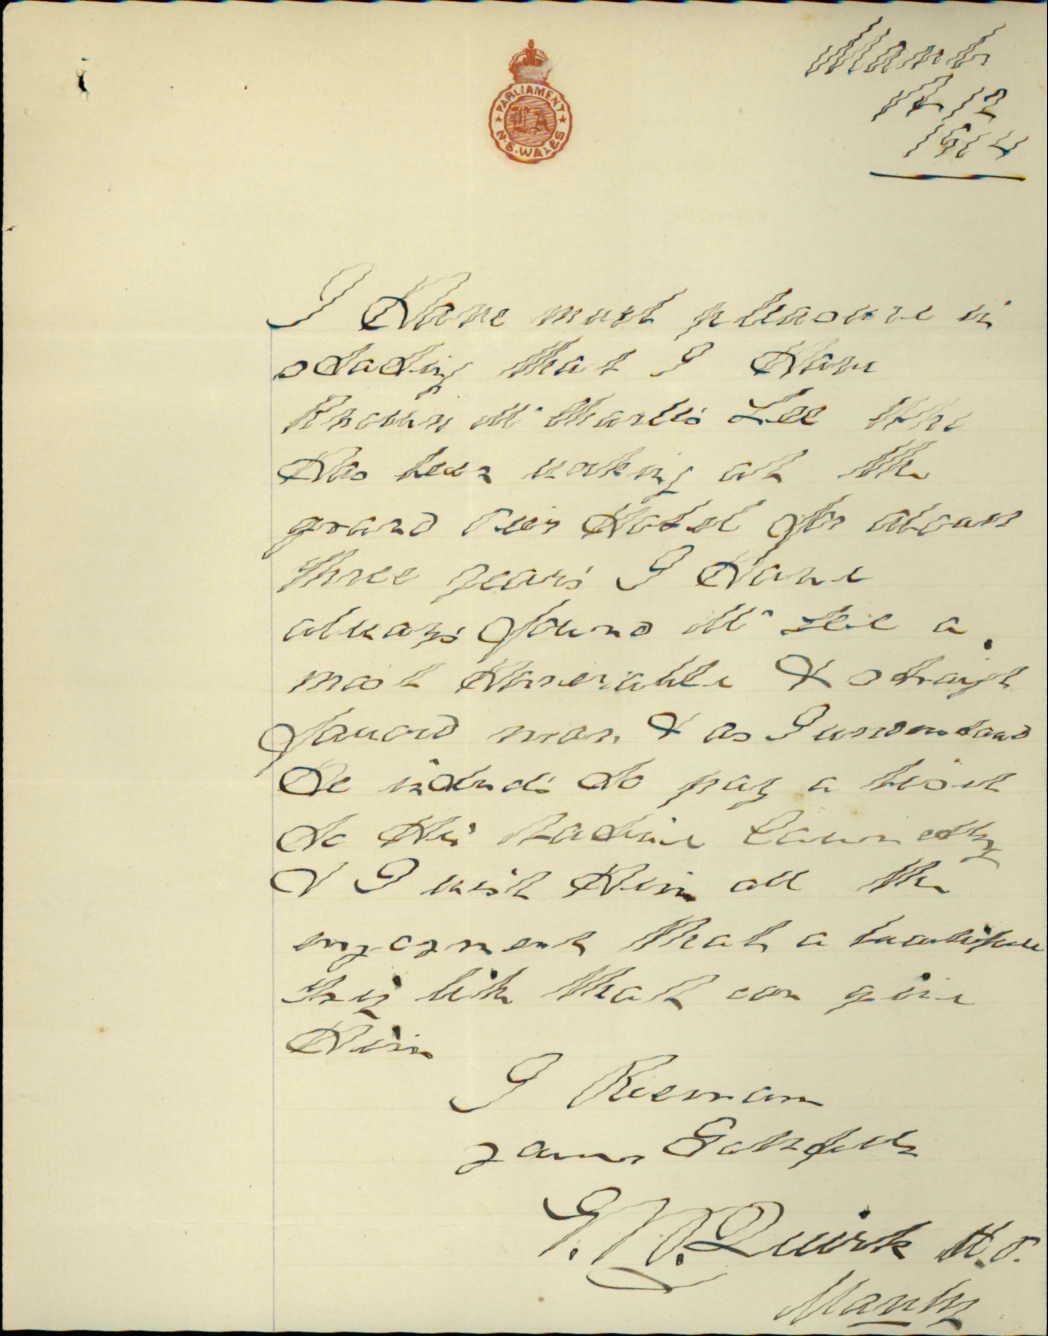 PARLIAMENT
L A
N.S. WALES
Manly
17-12
1914
I Have much pleasure in
stating that I Have
Known Mr Charlis Lee Who
Has been working at the
grand Pier Hotel for about
three years I Have
always found Mr Lee a
most Honerable & straight
forward man & as I understand
He intends to pay a visit
to His Native Country
& I wish Him all the
enjoyment that a beautifull
trip like that can give
Him
I Remain
yours
Quirk
Manly